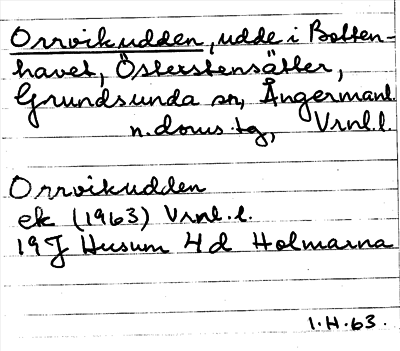 Orrvikudden, udde i Botten-
havet, Österstensätter,
Grundsunda sn, Ångermanl.
n. doms. tg, Vrnl. l.
Orrvikudden
ek (1963) Vrnl. l.
19J Husum 4d Holmarna
1.H.63.